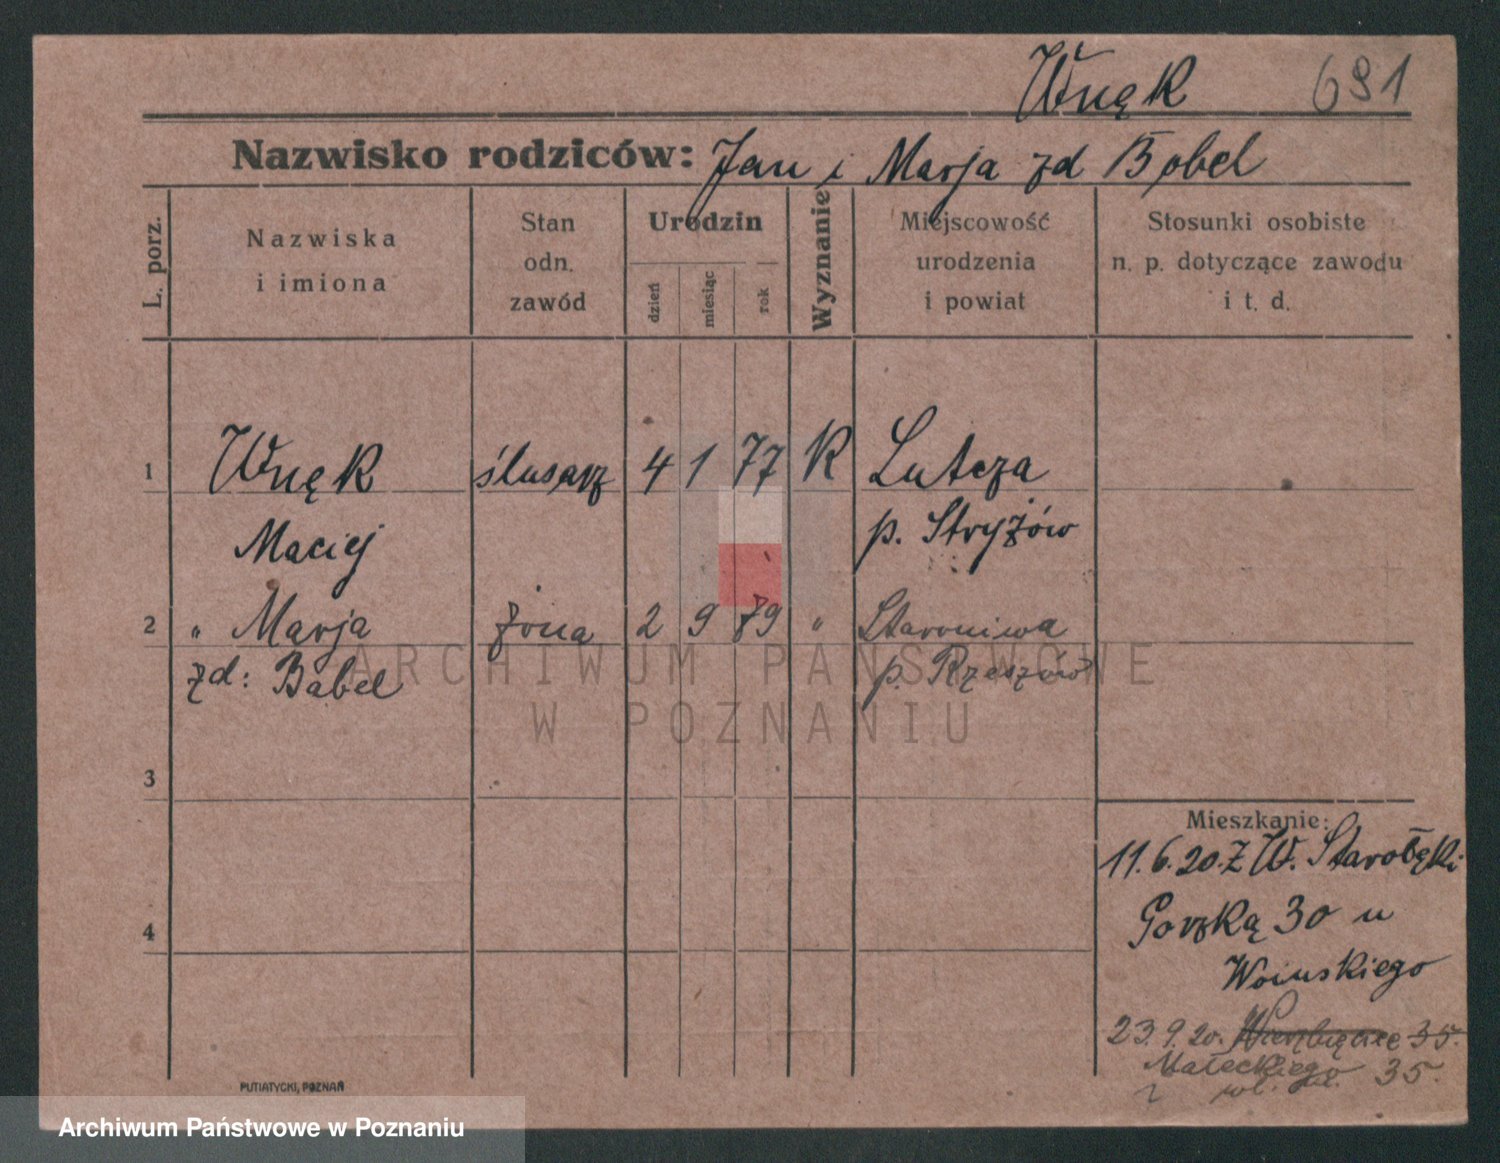 Wnęk 691
Nazwisko rodziców: Jan i Marja zd Bobel
L. porz.
Nazwiska
i imiona
Stan
odn.
zawód
Urodzin
dzień
miesiąc
rok
Wyznanie
Miejscowość
urodzenia
i powiat
Stosunki osobiste
n. p. dotyczące zawodu
i t. d.
1 Wnęk ślusarz 4 1 77 K Lutcza
Maciej p. Stryżów
2 " Marja żona 2 9 79 " Staroniwa
zd: Babel p. Rzeszów
3
4
Mieszkanie:
11.6.20. Z W. Starołęki
Gorzką 30 u
Woińskiego
23.9.20. 35.
Małeckiego 35.
PUTIATYCKI, POZNAŃ
ARCHIWUM PAŃSTWOWE
W POZNANIU
Archiwum Państwowe w Poznaniu